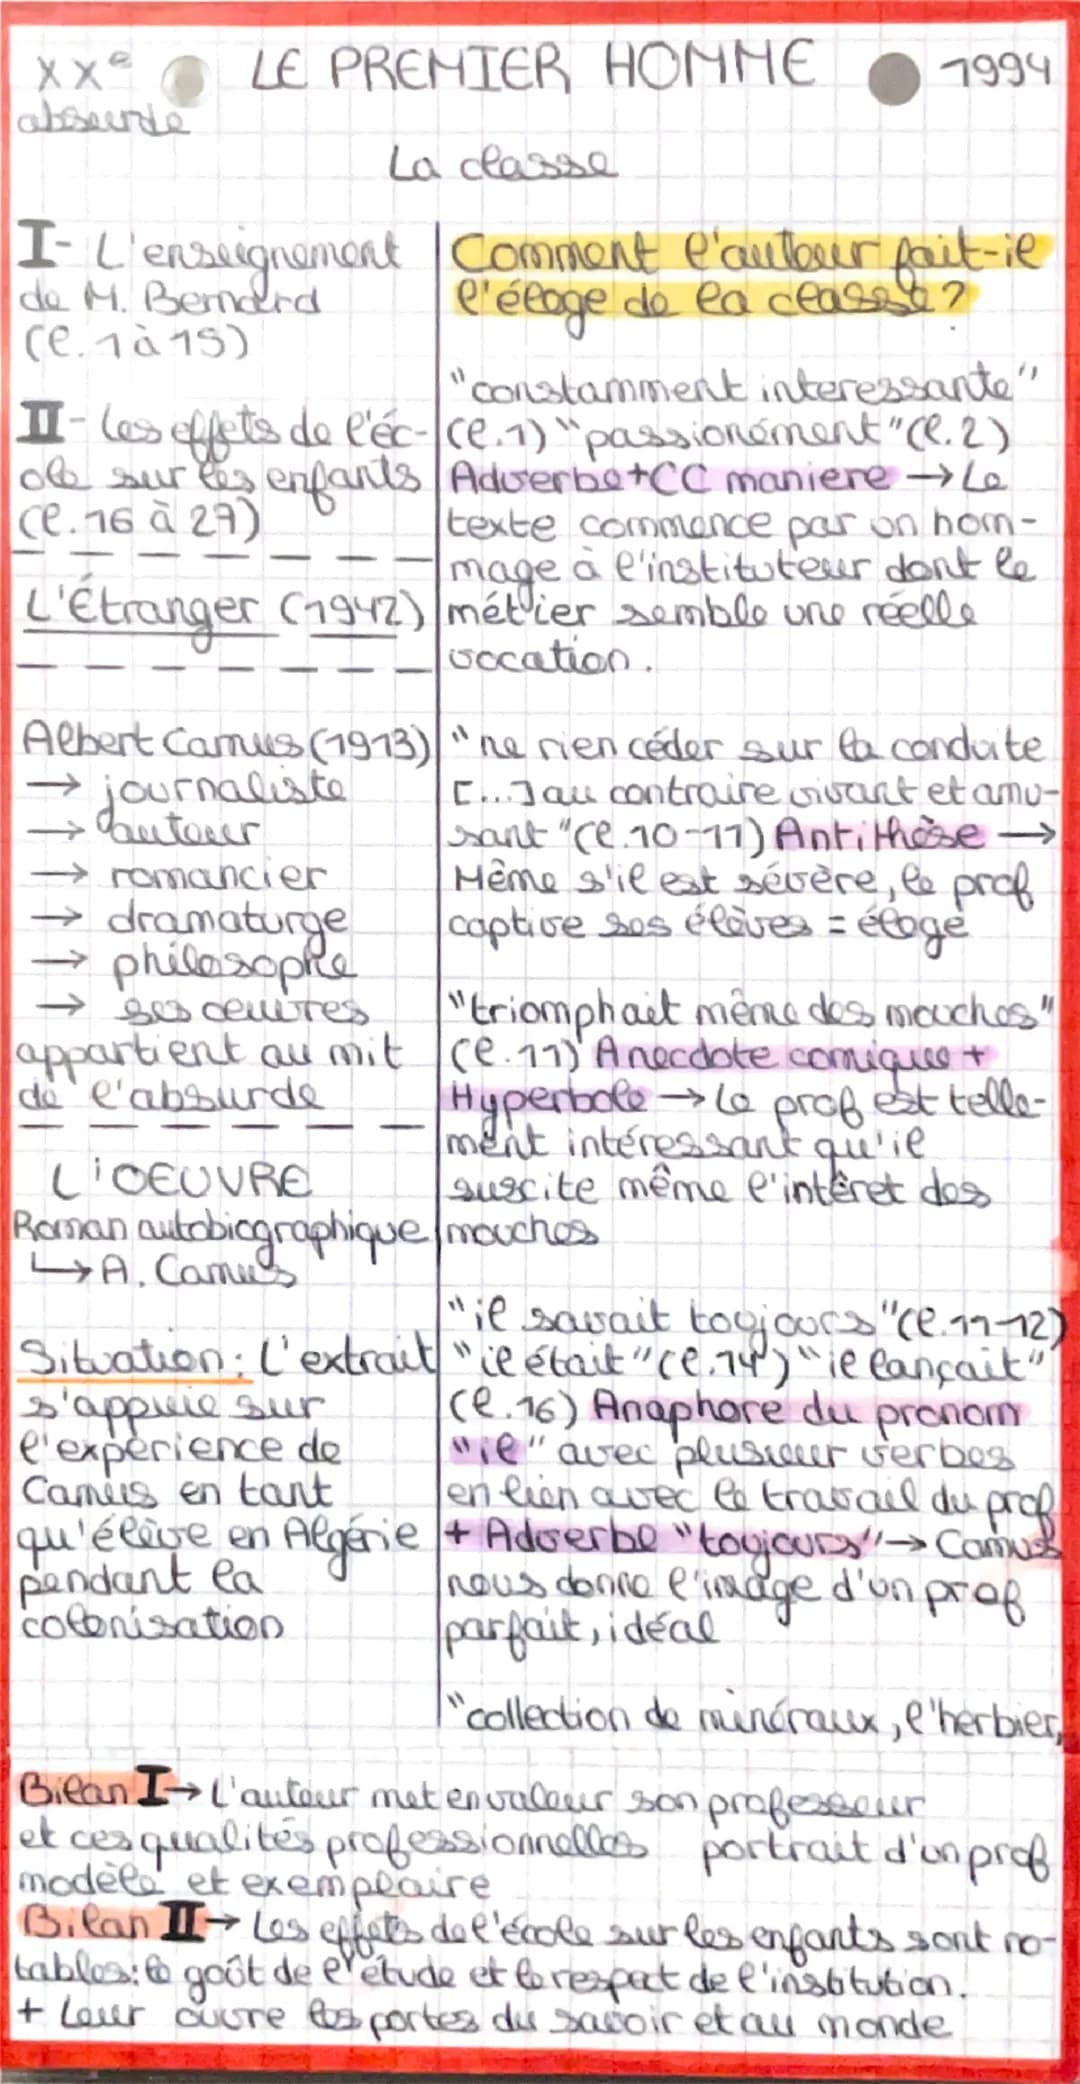 XXe LE PREMIER HOMME 1994
absurde
La classe
I- L'enseignement
de M. Bernard
(l. 1 à 15)
II- Les effets de l'éc-
ole sur les enfants
(l. 16 à 27)
L'Étranger (1942)
Albert Camus (1913)
→ journaliste
→ auteur
→ romancier
→ dramaturge
→ philosophe
→ ses œuvres
appartient au mit
de l'absurde
L'OEUVRE
Roman autobiographique
↳ A. Camus
Situation: L'extrait
s'appuie sur
l'expérience de
Camus en tant
qu'élève en Algérie
pendant la
colonisation
Comment l'auteur fait-il
l'éloge de la classe?
"constamment interessante"
(l.1) "passionément" (l.2)
Adverbe+CC maniere → Le
texte commence par un hom-
mage à l'instituteur dont le
métier semble une réelle
vocation.
"ne rien céder sur la conduite
[...] au contraire vivant et amu-
sant" (l.10-11) Antithèse →
Même s'il est sévère, le prof
captive ses élèves = éloge
"triomphait même des mouches"
(l.11) Anecdote comique +
Hyperbole → Le prof est telle-
ment intéressant qu'il
suscite même l'intêret des
mouches
"il savait toujours" (l.11-12)
"il était" (l.14) "il lançait"
(l.16) Anaphore du pronom
"il" avec plusieur verbes
en lien avec le travail du prof
+ Adverbe "toujours" → Camus
nous donne l'image d'un prof
parfait, idéal
"collection de minéraux, l'herbier,
Bilan I → L'auteur met en valeur son professeur
et ces qualités professionnelles portrait d'un prof
modèle et exemplaire
Bilan II → Les effets de l'école sur les enfants sont no-
tables: le goût de l'étude et le respect de l'institution.
+ Leur ouvre les portes du savoir et au monde